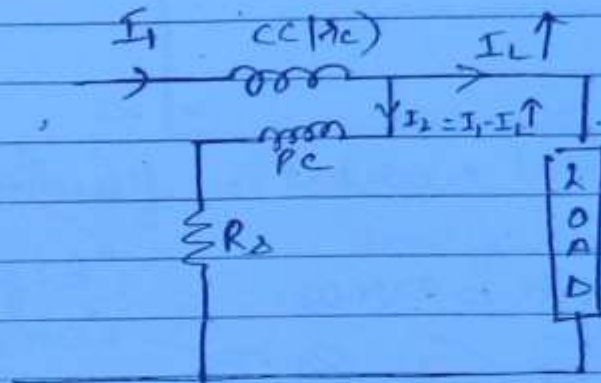 I₁ CC(λc) I_L ↑
I₂ = I₁-I₁ ↑
PC
Rs
L
O
A
D